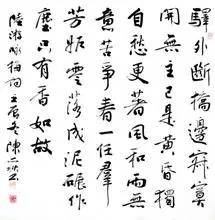 驛外斷橋邊寂寞
開無主已是黃昏獨
自愁更著風和雨無
意苦爭春一任羣
芳妒零落成泥碾作
塵只有香如故
陸游咏梅詞壬辰